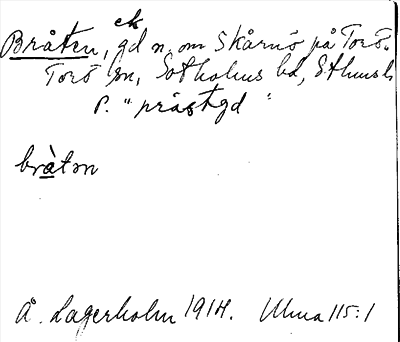 ek
Bråten, gd n. om Skårnö på Torö.
Torö sn, Sotholms hd, Sthms l.
P. "prästgd"
bràtən
Å. Lagerholm 1914. Ulma 115:1